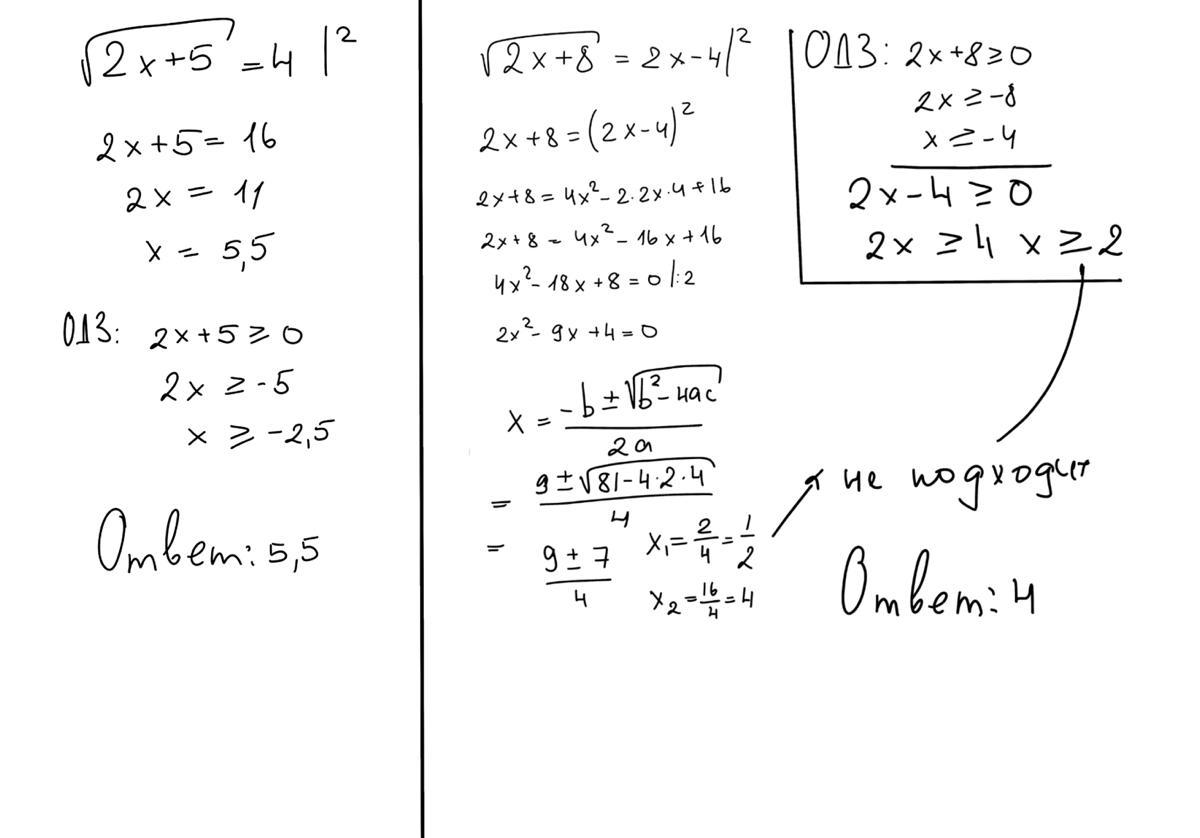 √(2x+5) = 4 |²
2x+5 = 16
2x = 11
x = 5,5
ОДЗ: 2x+5 ≥ 0
2x ≥ -5
x ≥ -2,5
Ответ: 5,5
√(2x+8) = 2x-4 |²
2x+8 = (2x-4)²
2x+8 = 4x²-2·2x·4+16
2x+8 = 4x²-16x+16
4x²-18x+8 = 0 |:2
2x²-9x+4 = 0
x = (-b±√(b²-4ac))/2a
= (9±√(81-4·2·4))/4
= (9±7)/4
x₁ = 2/4 = 1/2
x₂ = 16/4 = 4
ОДЗ: 2x+8 ≥ 0
2x ≥ -8
x ≥ -4
2x-4 ≥ 0
2x ≥ 4 x ≥ 2
не подходит
Ответ: 4